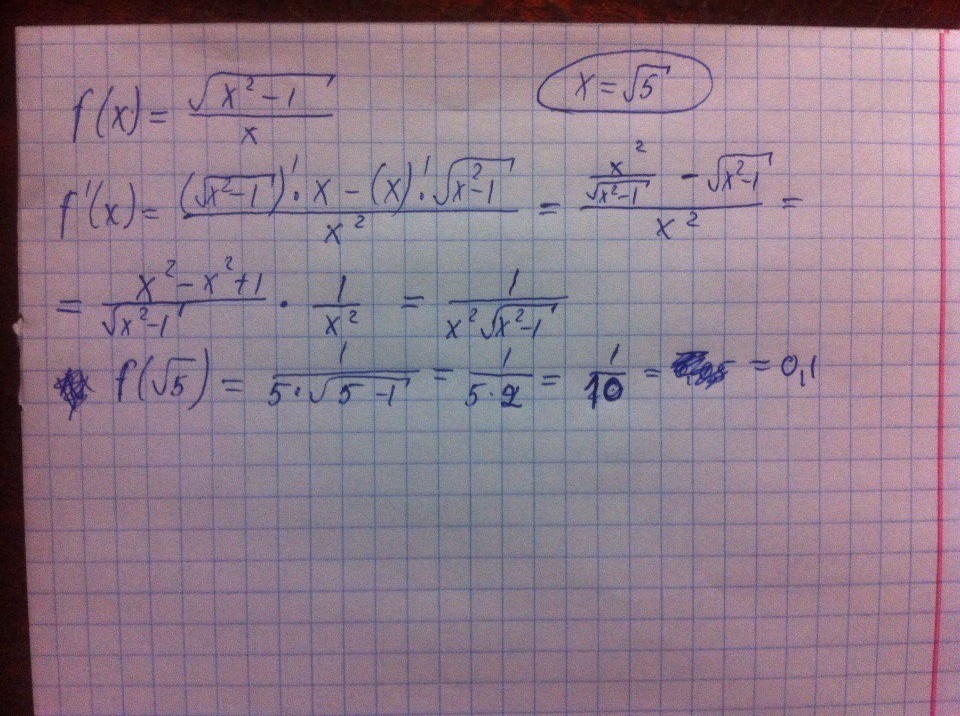 f(x) = √(x²-1) / x    x = √5
f'(x) = ((√(x²-1))' · x - (x)' · √(x²-1)) / x² = (x²/√(x²-1) - √(x²-1)) / x² =
= (x² - x² + 1) / √(x²-1) · 1/x² = 1 / (x²√(x²-1))
f(√5) = 1 / (5·√(5-1)) = 1 / (5·2) = 1/10 = = 0,1